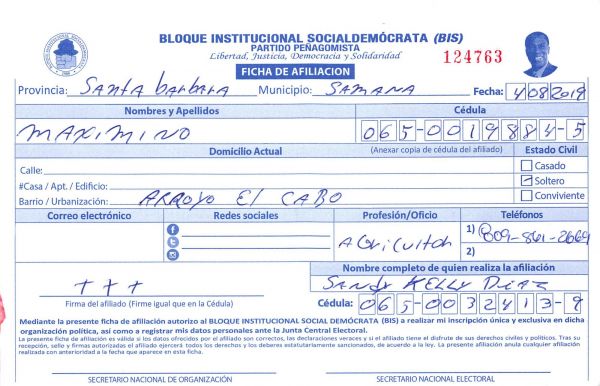 BLOQUE INSTITUCIONAL SOCIALDEMÓCRATA (BIS)
PARTIDO PEÑAGOMISTA
Libertad, Justicia, Democracia y Solidaridad
124763
FICHA DE AFILIACION
Provincia: Santa barbara Municipio: SAMANA Fecha: 4/08/2019
Nombres y Apellidos Cédula
MAXIMINO 065-0019884-5
Domicilio Actual (Anexar copia de cédula del afiliado) Estado Civil
Calle: Casado
#Casa / Apt. / Edificio: Soltero
Barrio / Urbanización: ARROYO El CABO Conviviente
Correo electrónico Redes sociales Profesión/Oficio Teléfonos
AGRicuitoR 1) 809-861-2669
2)
Nombre completo de quien realiza la afiliación
+++ SANDY KELLY DIAZ
Firma del afiliado (Firme igual que en la Cédula) Cédula: 065-0032413-9
Mediante la presente ficha de afiliación autorizo al BLOQUE INSTITUCIONAL SOCIAL DEMÓCRATA (BIS) a realizar mi inscripción única y exclusiva en dicha
organización política, así como a registrar mis datos personales ante la Junta Central Electoral.
La presente ficha de afiliación es válida si los datos ofrecidos por el afiliado son correctos, las declaraciones veraces y si el afiliado tiene el disfrute de sus derechos civiles y políticos. Tras su
recepción, selle y firmas autorizadas el afiliado ejercerá todos los derechos y los deberes estatutariamente sancionados, de acuerdo a la ley. La presente afiliación anula cualquier afiliación
realizada con anterioridad a la fecha que aparece en esta ficha.
SECRETARIO NACIONAL DE ORGANIZACIÓN SECRETARIO NACIONAL ELECTORAL